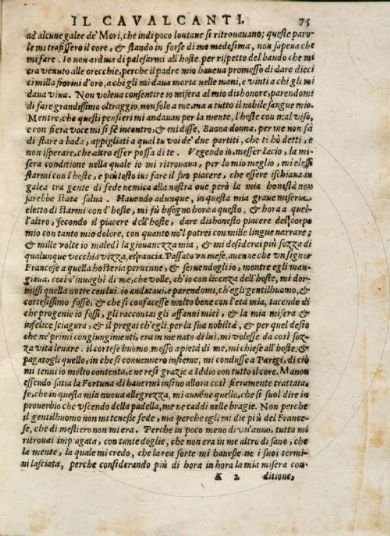 IL CAVALCANTI. 75
ad alcune galee de' Mori, che indi poco lontane si ritrouauano; queste paro-
le mi trafissero il core, & stando in forse di me medesima, non sapeua che
mi fare. Io non ardiua di palesarmi all'hoste, per rispetto del bando che mi
era venuto alle orecchie, perche il padre mio haueua promesso di dare dieci
mila fiorini d'oro, a chi gli mi daua morta nelle mani, e vinti a chi gli mi
daua viua. Non voleua consentire io misera al mio dishonore, parendomi
di fare grandissimo oltraggio, non solo a me, ma a tutto il nobile sangue mio.
Mentre, che questi pensieri mi andauan per la mente, l'hoste con mal viso,
e con fiera voce mi si fè incontro, & mi disse, Buona donna, per me non fà
di stare a bada, appigliati a qual tu voi de' due partiti, che ti hò detti, e
non isperare, che altro esser possa di te. Vegendo io, messer Lucio, la mi-
sera conditione nella quale io mi ritrouaua, per lo mio meglio, mi elessi
starmi con l'hoste, e più tosto iui fare il suo piacere, che essere ischiaua in
galea tra gente di fede nemica alla nostra oue però la mia honestà non
sarebbe stata salua. Hauendo adunque, in questa mia graue miseria,
eletto di starmi con l'hoste, mi fù bisogno hora a questo, & hora a quel-
l'altro, secondo il piacere dell'hoste, dare dishonesto piacere del corpo
mio con tanto mio dolore, con quanto nō'l potrei con mille lingue narrare;
& mille volte io maledì la giouanezza mia, & mi desiderai più sozza di
qualunque vecchia vizza, et rancia. Passato vn mese, auenne che vn signor
Francese a quella hosteria peruenne, & seruendogli io, mentre egli man-
giaua, così s'inuaghì di me, che volle, ch'io con licenza dell'hoste, mi dor-
missi quella notte con lui. io andataui, e parendomi, ch'egli gentilhuomo, &
cortesissimo fosse, & che si confacesse molto bene con l'età mia, tacendo di
che progenie io fossi, gli raccontai gli affanni miei, & la mia misera &
infelice sciagura, & il pregai ch'egli per la sua nobiltà, & per quel desio
che ne' primi congiungimenti, era in me nato di lui, mi volesse da così soz-
za vita leuare. il cortese huomo, mosso a pietà di me, mi chiese all'hoste, &
pagatogli quello, in che si conuennero insieme, mi condusse a Parigi, di che
mi tenni io molto contenta, e ne resi gratie a Iddio con tutto il core. Ma non
essendo satia la Fortuna di hauermi insino allora così fieramente trattata,
fe, che in questa mia nuoua allegrezza, mi auenne quello, che si suol dire in
prouerbio che vscendo della padella, me ne caddi nelle bragie. Non perche
il gentilhuomo non mi tenesse fede, ma perche egli mi diè più del France-
se, che di mestiero non mi era. Perche in poco meno di vn'anno, tutta mi
ritrouai impiagata, con tante doglie, che non era in me altro di sano, che
la mente, la quale mi credo, che la rea sorte mi hauesse ne i suoi termi-
ni lasciata, perche considerando più di hora in hora la mia misera con-
K 2 ditione,